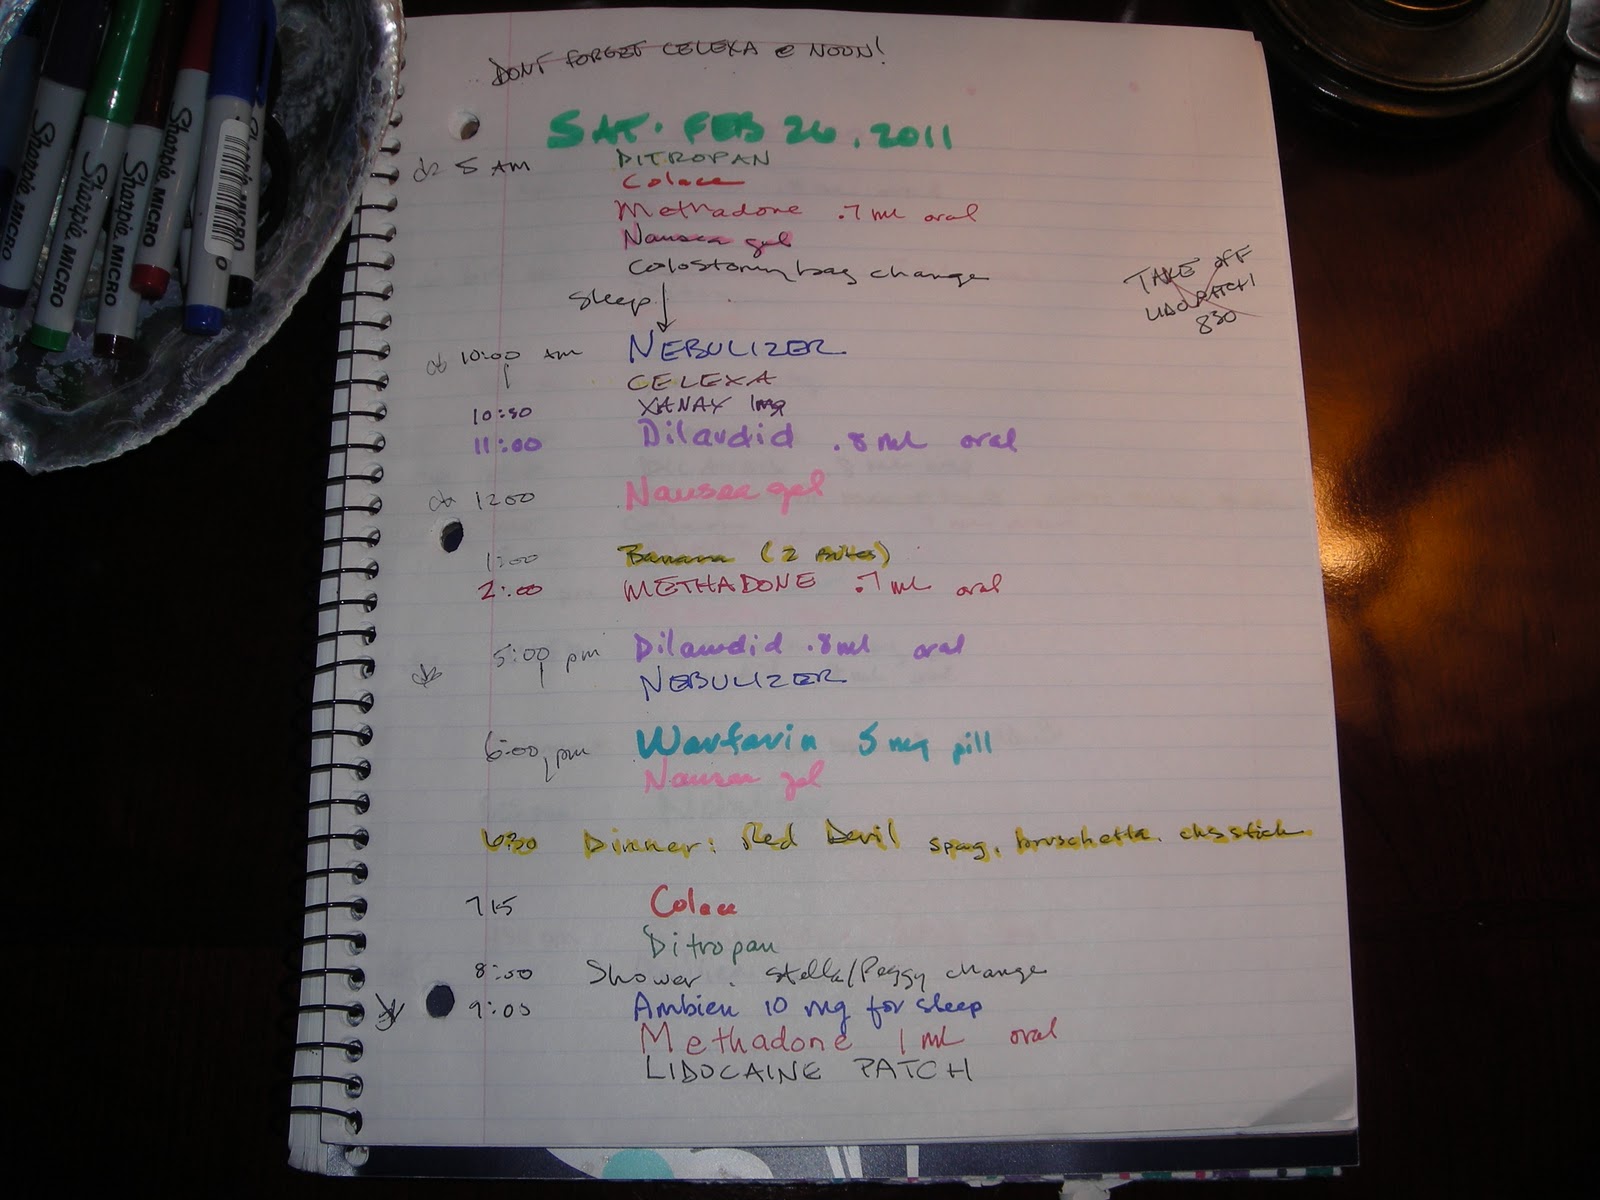 DONT FORGET CELEXA @ NOON!
SAT. FEB 26, 2011
5 AM DITROPAN
Colace
Methadone .7 ml oral
Nausea gel
Colostomy bag change
Sleep
TAKE OFF
LIDO PATCH
830
10:00 AM NEBULIZER
CELEXA
10:50 XANAX 1mg
11:00 Dilaudid .8 ml oral
1200 Nausea gel
1:00 Banana (2 Bites)
2:00 METHADONE .7 ml oral
5:00 pm Dilaudid .8 ml oral
NEBULIZER
6:00 pm Warfarin 5 mg pill
Nausea gel
6:30 Dinner: Red Devil spag, bruschetta. chs stick
715 Colace
Ditropan
8:00 Shower. Stella/Peggy change
9:00 Ambien 10 mg for sleep
Methadone 1 ml oral
LIDOCAINE PATCH
Sharpie MICRO
Sharpie MICRO
Sharpie MICRO
Sharpie MICRO
Sharpie MICRO